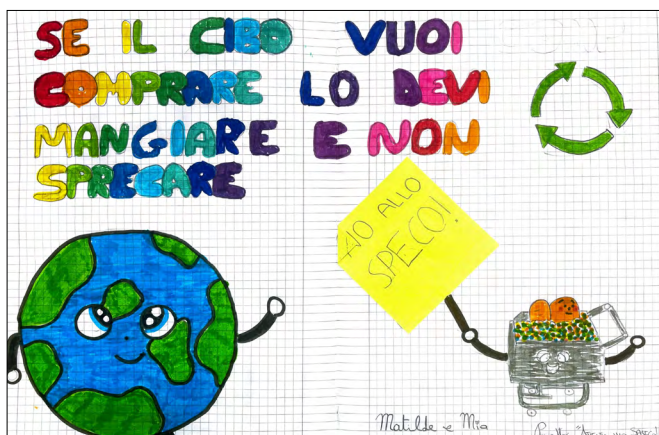 SE IL CIBO VUOI
COMPRARE LO DEVI
MANGIARE E NON
SPRECARE
NO ALLO
SPECO!
Matilde e Mia